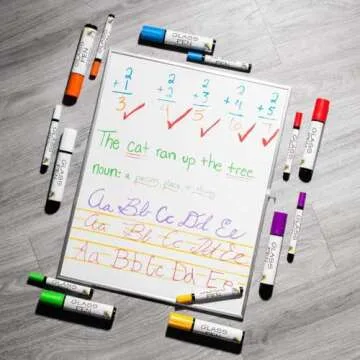 2 2 2 2 2
+1 +2 +3 +4 +5
3 4 5 6 7
The cat ran up the tree
noun: a person, place or thing
Aa Bb Cc Dd Ee
Aa Bb Cc Dd Ee
Aa Bb Cc Dd Ee
GLASS PEN
GLASS PEN
GLASS PEN
GLASS PEN
GLASS PEN
GLASS PEN
GLASS PEN